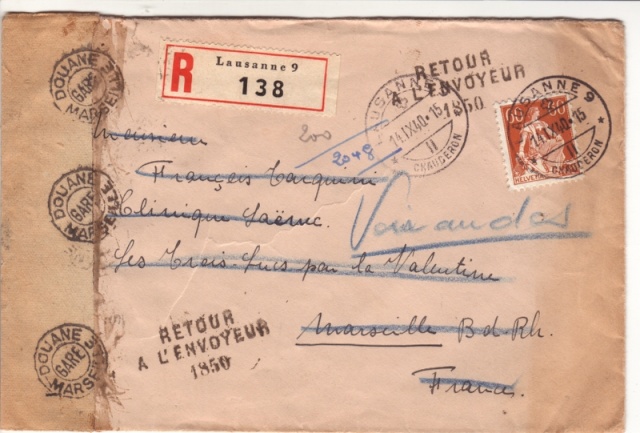 R
Lausanne 9
138
RETOUR
A L'ENVOYEUR
1850
LAUSANNE 9
14.IX.40.-15
11
CHAUDERON
LAUSANNE 9
14.IX.40.-15
11
CHAUDERON
60 60
HELVETIA
DOUANE
GARE
MARSEILLE
DOUANE
GARE
MARSEILLE
DOUANE
GARE
MARSEILLE
200
2048
Monsieur
François Tarquini
Clinique Laënnec
Voir au dos
Les Trois-Lucs par la Valentine
Marseille Bd-Rh.
France.
RETOUR
A L'ENVOYEUR
1850